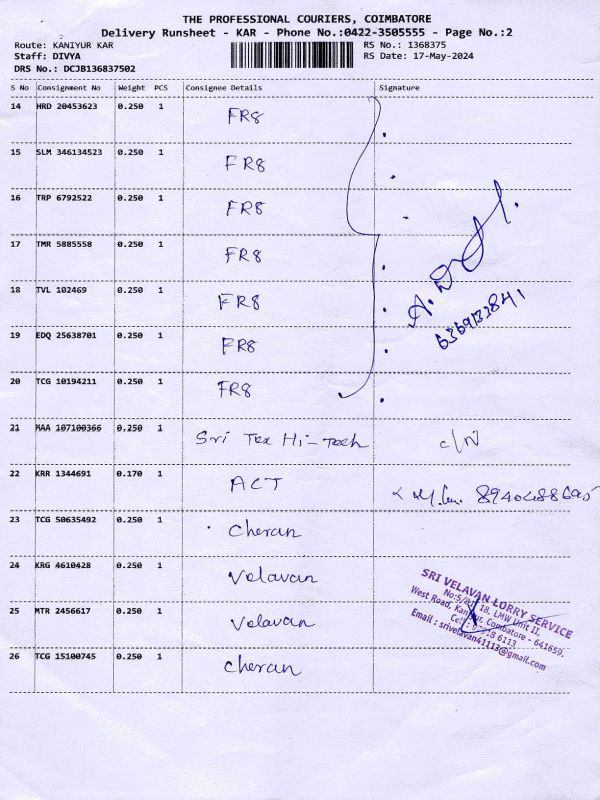 THE PROFESSIONAL COURIERS, COIMBATORE
Delivery Runsheet - KAR - Phone No.:0422-3505555 - Page No.:2
Route: KANIYUR KAR RS No.: 1368375
Staff: DIVYA RS Date: 17-May-2024
DRS No.: DCJB136837502
S No Consignment No Weight PCS Consignee Details Signature
14 HRD 20453623 0.250 1 FR8
15 SLM 346134523 0.250 1 FR8
16 TRP 6792522 0.250 1 FR8
17 TMR 5885558 0.250 1 FR8
18 TVL 102469 0.250 1 FR8
19 EDQ 25638701 0.250 1 FR8
20 TCG 10194211 0.250 1 FR8
21 MAA 107100366 0.250 1 Sri Tex Hi-Tech c/N
22 KRR 1344691 0.170 1 ACT
23 TCG 50635492 0.250 1 Cheran
24 KRG 4610428 0.250 1 Velavan
25 MTR 2456617 0.250 1 Velavan
26 TCG 15100745 0.250 1 Cheran
SRI VELAVAN LORRY SERVICE
18, LMW Unit II,
West Road, Coimbatore - 641659.
Cell : 6113
Email : srivelavan41113@gmail.com